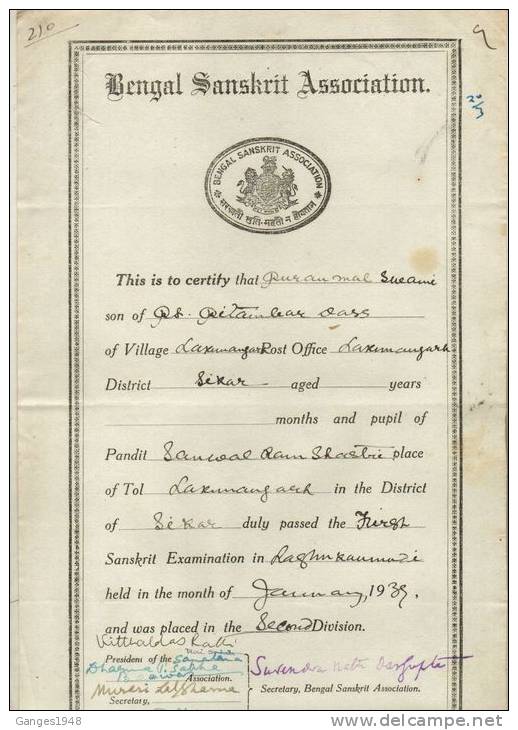 210
9
Bengal Sanskrit Association.
20/3
BENGAL SANSKRIT ASSOCIATION
This is to certify that Puranmal Swami
son of Pt. Pitambar Dass
of Village Laxmangarh Post Office Laxmangarh
District Sikar aged years
months and pupil of
Pandit Sanwal Ram Shastri place
of Tol Laxmangarh in the District
of Sikar duly passed the First
Sanskrit Examination in Laghukaumudi
held in the month of January, 1939.
and was placed in the Second Division.
Vitthaldas Rathi
President of the Sanatana
Dharma
Association.
Surendra Nath Dasgupta
Murari Lal Sharma
Secretary,
Secretary, Bengal Sanskrit Association.
Ganges1948
delcampe.net